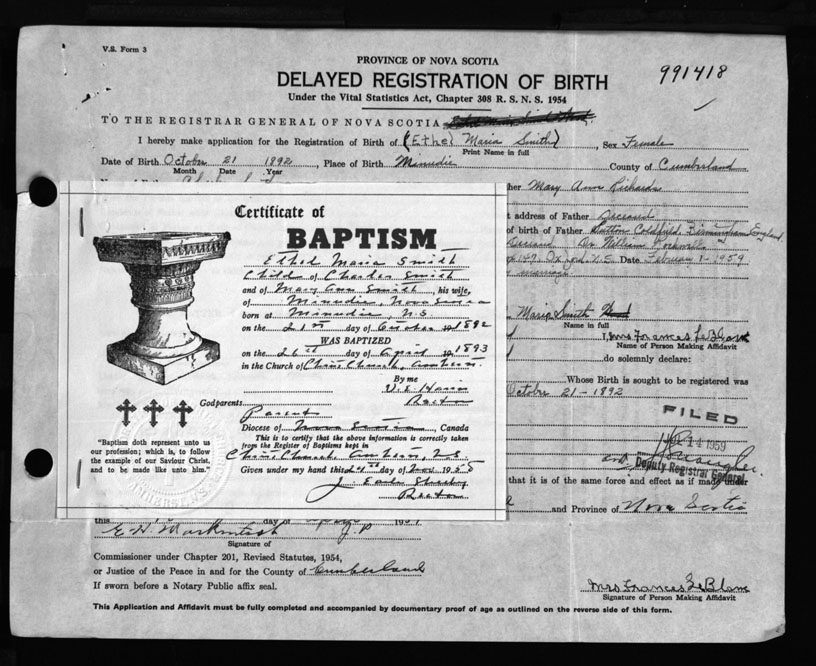 V.S. Form 3
PROVINCE OF NOVA SCOTIA
991418
DELAYED REGISTRATION OF BIRTH
Under the Vital Statistics Act, Chapter 308 R. S. N. S. 1954
TO THE REGISTRAR GENERAL OF NOVA SCOTIA
I hereby make application for the Registration of Birth of (Ethel Maria Smith), Sex Female
Print Name in full
Date of Birth October 21 1892, Place of Birth Minudie County of Cumberland
Month Date Year
her Mary Ann Richards
t address of Father Deceased
of birth of Father Sutton Coldfield, Birmingham, England
Deceased Dr. William
Oxford N.S. Date February 1 - 1959
marriage
Certificate of
BAPTISM
Ethel Maria Smith
Child of Charles Smith
and of Mary Ann Smith, his wife,
of Minudie, Nova Scotia
born at Minudie, N.S.
on the 21st day of October 1892
WAS BAPTIZED
on the 26th day of April 1893
in the Church of Christ Church, Amherst.
By me
V. E. Harris
Rector
Godparents
Parents
Diocese of Nova Scotia, Canada
This is to certify that the above information is correctly taken
from the Register of Baptisms kept in
Christ Church Amherst, N.S.
Given under my hand this 24th day of Nov. 1958
J.
Rector
"Baptism doth represent unto us
our profession; which is, to follow
the example of our Saviour Christ,
and to be made like unto him."
Maria Smith
Name in full
I, Mrs Frances LeBlanc
Name of Person Making Affidavit
do solemnly declare:
Whose Birth is sought to be registered was
October 21 - 1892
FILED
14 1959
Deputy Registrar General
that it is of the same force and effect as if made under
and Province of Nova Scotia
this day of
E. H. Mackintosh J.P
Signature of
Commissioner under Chapter 201, Revised Statutes, 1954,
or Justice of the Peace in and for the County of Cumberland
If sworn before a Notary Public affix seal.
Mrs Frances LeBlanc
Signature of Person Making Affidavit
This Application and Affidavit must be fully completed and accompanied by documentary proof of age as outlined on the reverse side of this form.